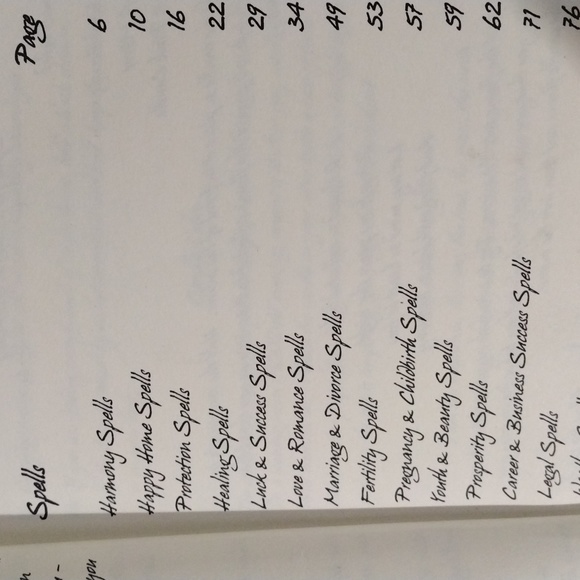 Spells Page
Harmony Spells 6
Happy Home Spells 10
Protection Spells 16
Healing Spells 22
Luck & Success Spells 29
Love & Romance Spells 34
Marriage & Divorce Spells 49
Fertility Spells 53
Pregnancy & Childbirth Spells 57
Youth & Beauty Spells 59
Prosperity Spells 62
Career & Business Success Spells 71
Legal Spells 76
you